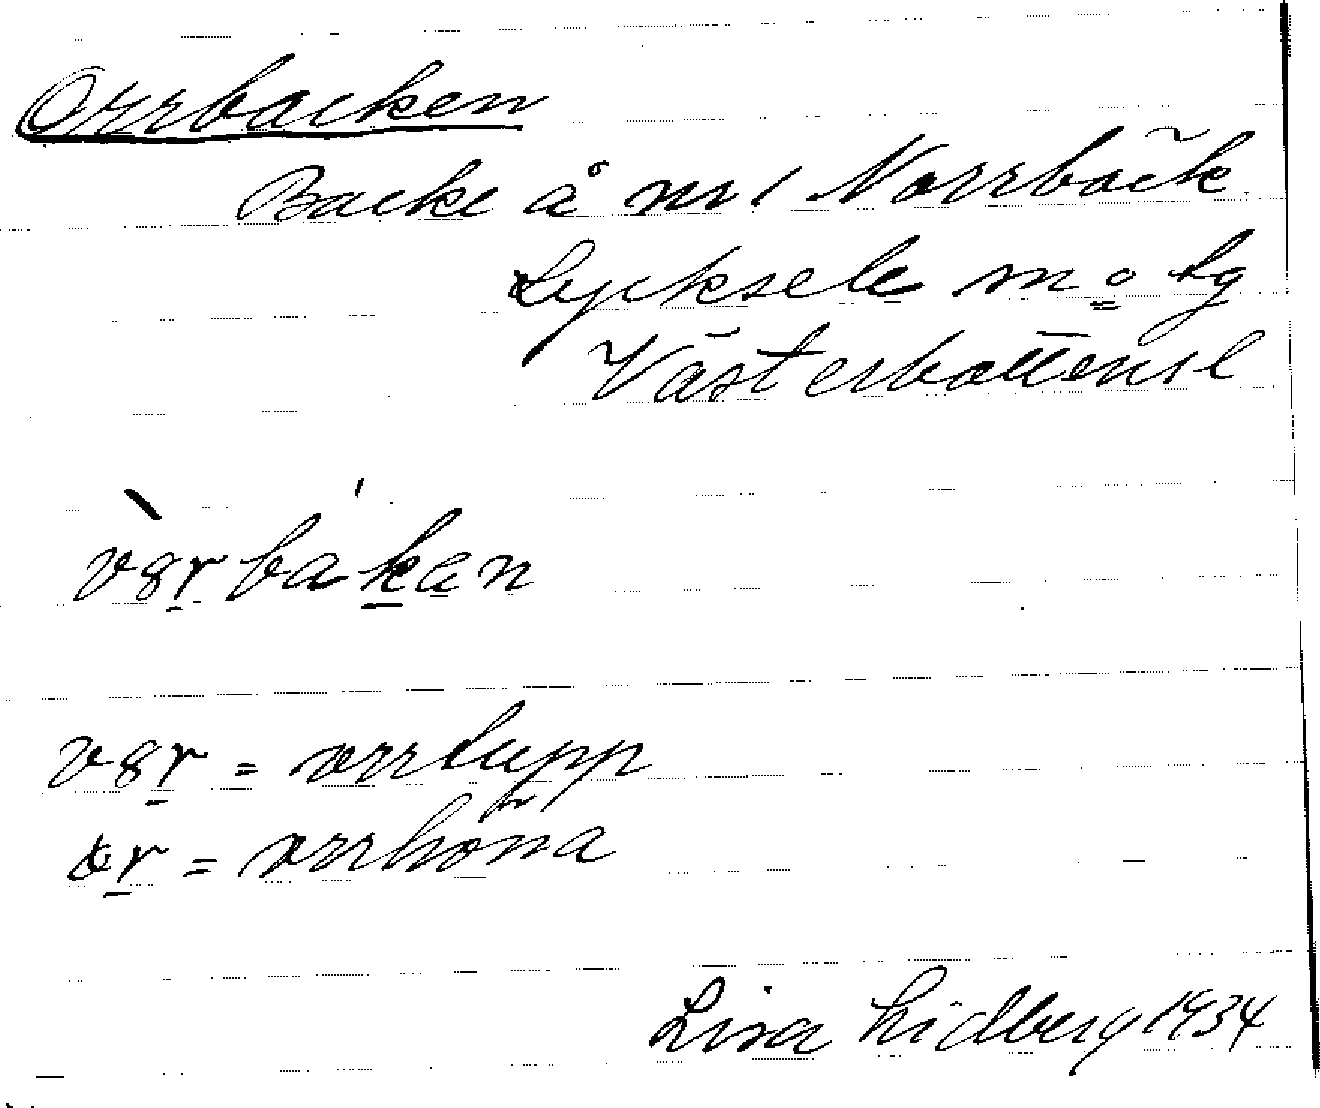 Orrbacken
Backe å nr 1 Norrbäck
Lycksele m o lg
Västerbottens l
= orrtupp
= orrhöna
Lisa Lidberg 1934